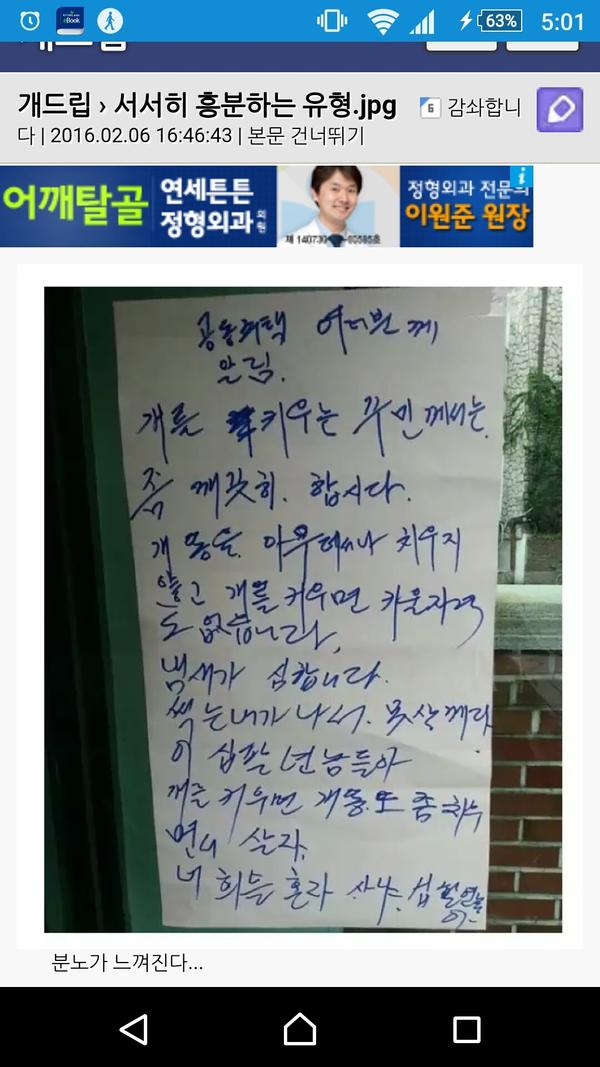 63% 5:01
개드립 › 서서히 흥분하는 유형.jpg 6 감솨합니
다 | 2016.02.06 16:46:43 | 본문 건너뛰기
어깨탈골 연세튼튼 정형외과 의원 정형외과 전문의 이원준 원장
공동주택 여러분께
알림.
개를 키우는 주민께서는.
좀 깨끗히. 합시다.
개 똥을. 아무데서나 치우지
않고 개를 키우면 키울자격
도 없습니다.
냄새가 심합니다.
썩는내가 나서. 못살께따
이 십팔 년놈들아
개를 키우면 개똥.도 좀 치우
면서 살자.
너희들 혼라 사냐. 십팔년놈
아-
분노가 느껴진다...